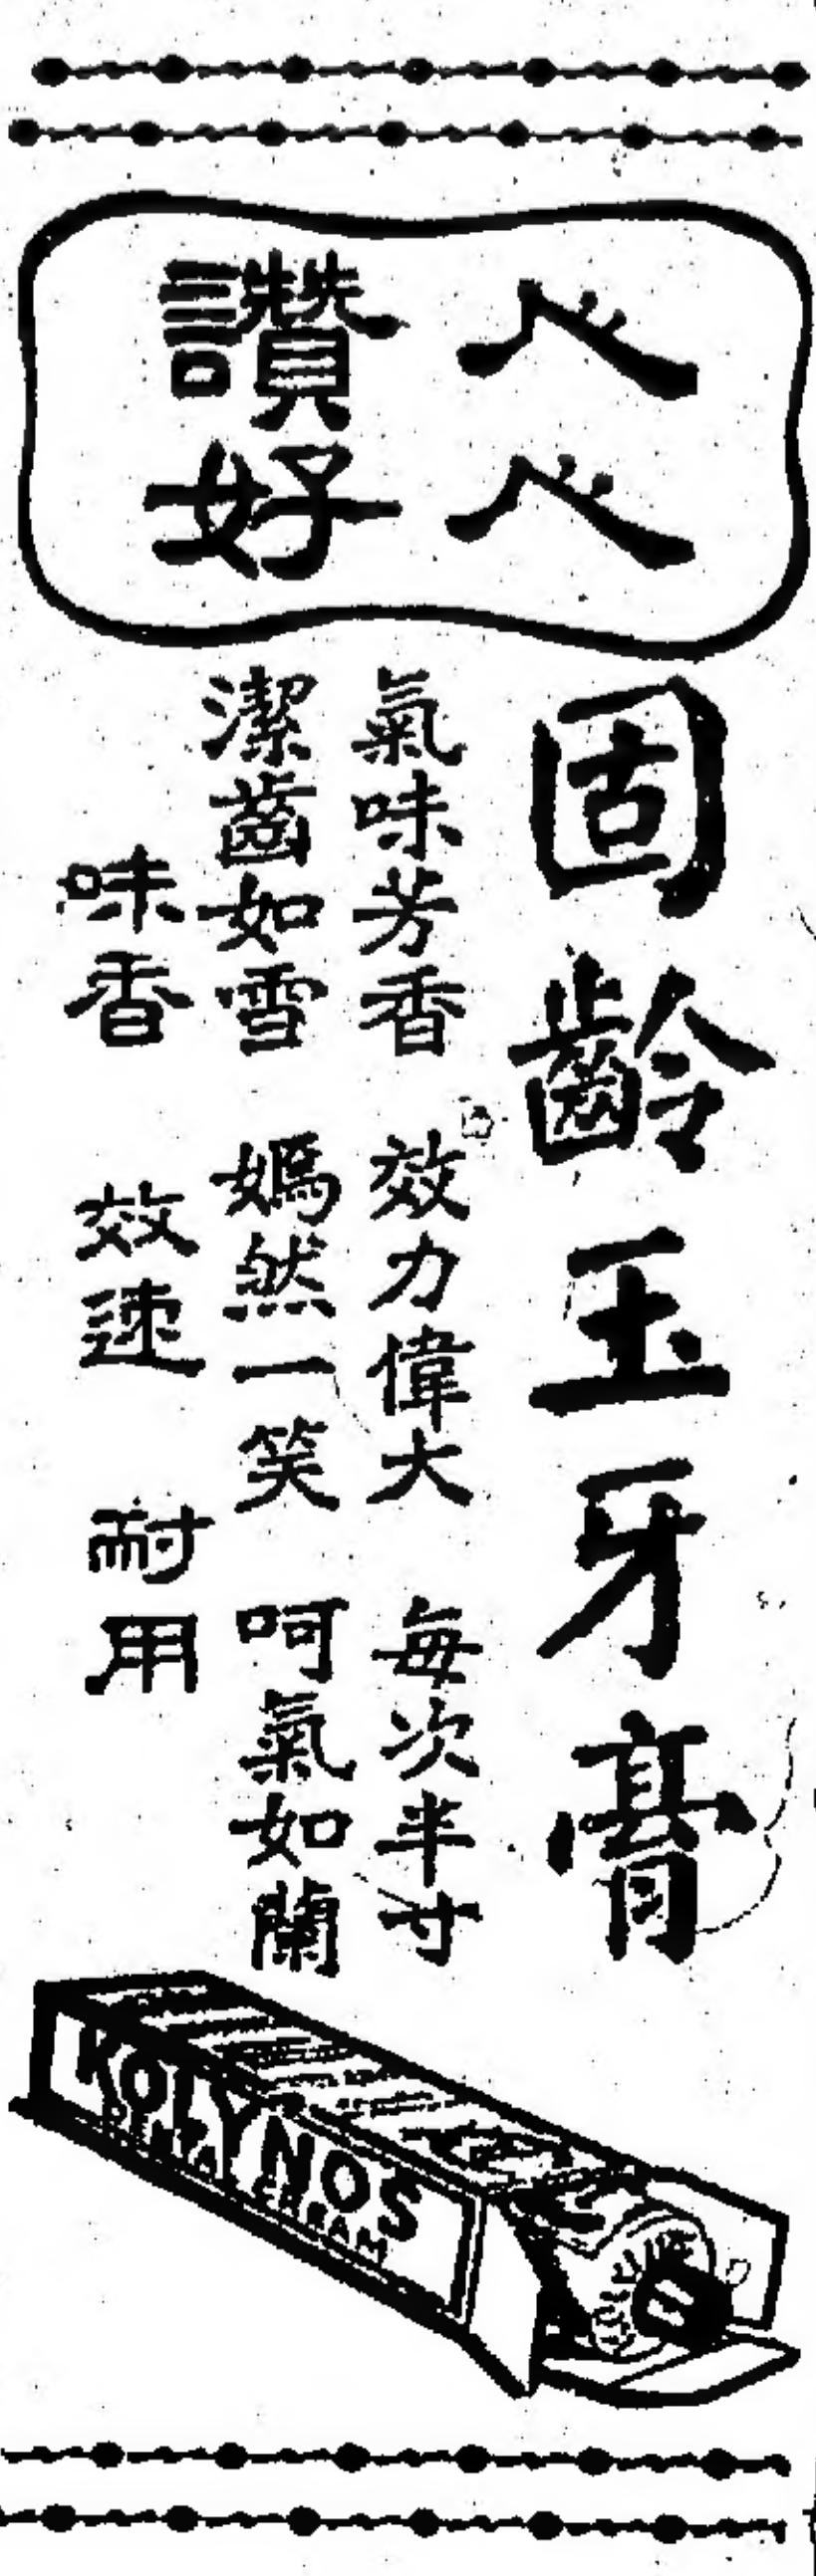 人人
讚好
固齡玉牙膏
氣味芳香 效力偉大 每次半寸
潔齒如雪 嫣然一笑 呵氣如蘭
味香 效速 耐用
KOLYNOS
DENTAL CREAM